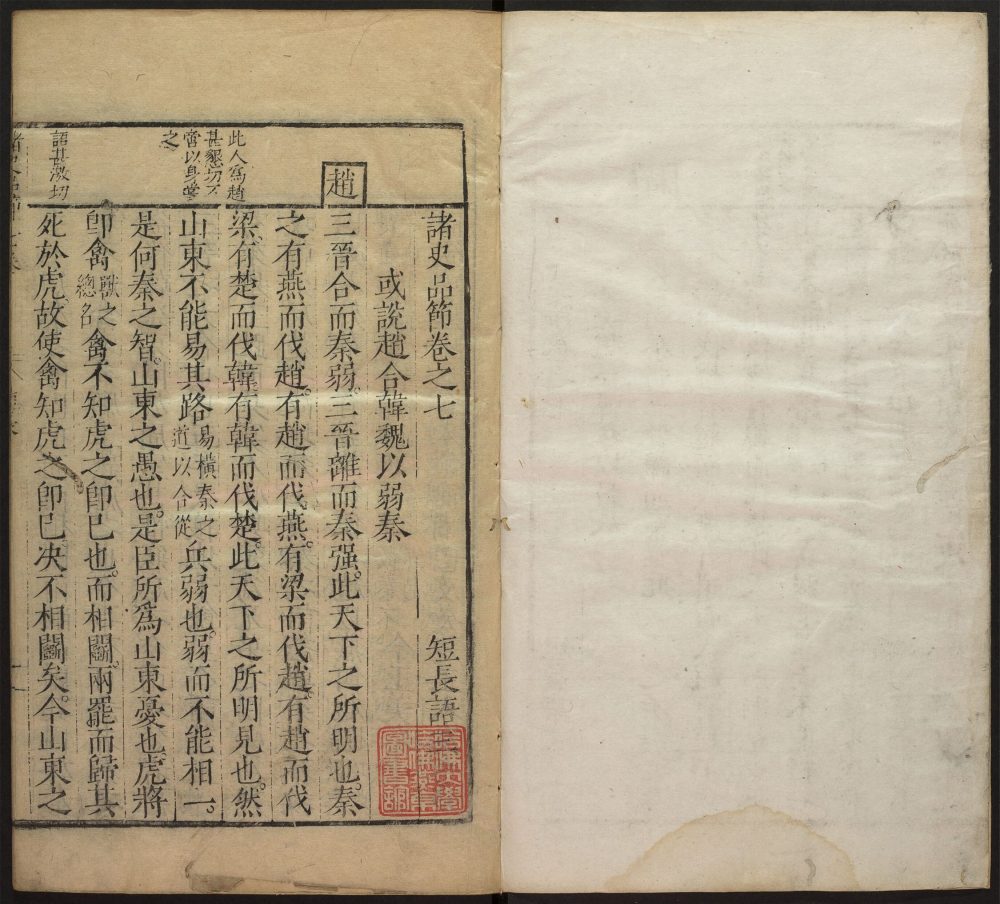 諸史品節卷之七
短長語
或說趙合韓魏以弱秦
趙
三晉合而秦弱。三晉離而秦强。此天下之所明也。秦
之有燕而伐趙。有趙而伐燕。有梁而伐趙。有趙而伐
梁。有楚而伐韓。有韓而伐楚。此天下之所明見也。然
山東不能易其路
易橫秦之
道以合從
兵弱也。弱而不能相一。
是何秦之智。山東之愚也。是臣所爲山東憂也。虎將
卽禽
獸之
總名
禽不知虎之卽已也。而相鬭。兩罷而歸其
死於虎。故使禽知虎之卽已。决不相鬭矣。今山東之
此人爲趙
甚懇切
當以身
之
語甚激切